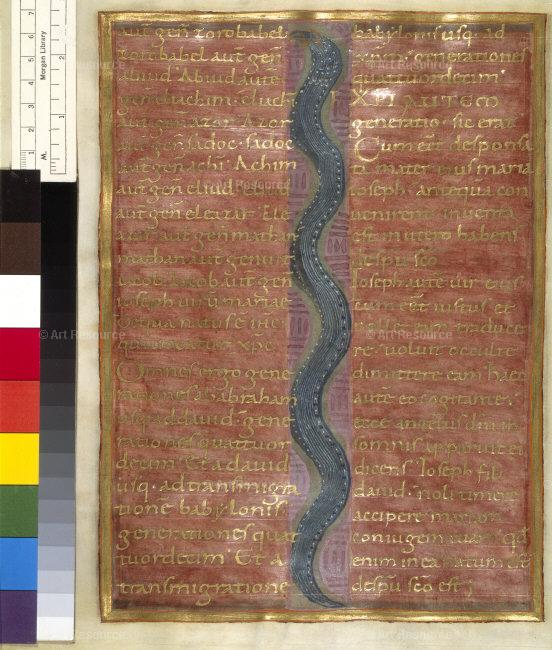 aut gen̄ zorobabel
zorobabel aut̄ gen̄
abiud Abiud aute
gen̄ eliachim eliach
aut gen̄ azor Azor
aut gen̄ sadoc sadoc
aut gen̄ achi Achim
aut gen̄ eliud eliud
aut gen̄ eleazar Ele
azar aut̄ gen̄ mathan
mathan aut̄ genuit
iacob Iacob aut gen̄
ioseph uirū mariae
de qua natus ē ihc
qui uocatur xpc
Omnes ergo gene
rationes ab abraham
usq· ad dauid· gene
rationes quattuor
decim· Et a dauid
usq· ad transmigra
tionē babylonis
generationes quat
tuordecim· Et a
transmigratione
babylonis usq· ad
generationes
quattuordecim·
XPI AUTEM
generatio· sic erat
Cum eēt desponsa
ta mater eius maria
ioseph· antequa con
uenirent· inuenta
est in utero habens
de spū sc̄o
Ioseph aute uir eius
cum eēt iustus et
nollet eam traducere
re· uoluit occulte
dimittere eam haec
autē eo cogitante·
ecce angelus dnī in
somnis apparuit ei
dicens· Ioseph fili
dauid· noli timere
accipere mariam
coniugem tuam· qd̄
enim in ea natum est
de spū sc̄o est;
Morgan Library
M.
1
2
3
4
5
6
7
1
2
© Art Resource
© Art Resource
© Art Resource
Art Resource
Art Resource